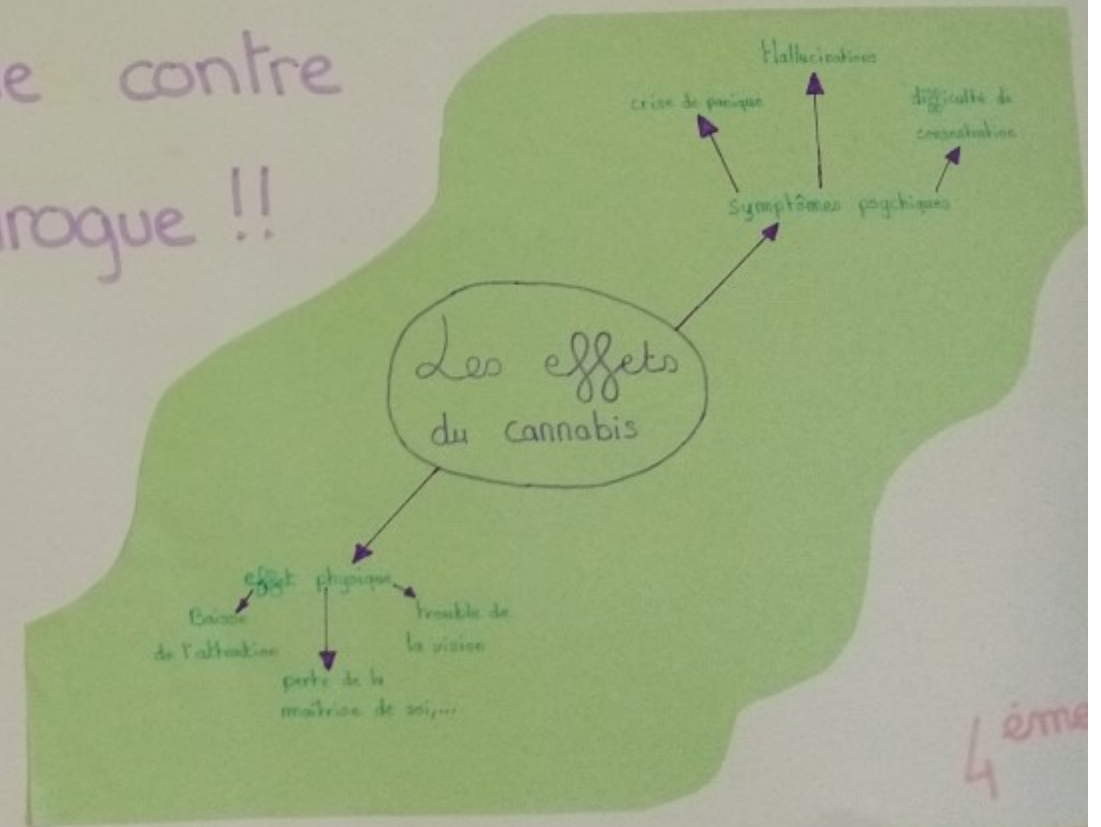 contre
!!
Hallucinations
crise de panique
difficulté de
concentration
symptômes psychiques
Les effets
du cannabis
effet physique
Baisse
de l'attention
trouble de
la vision
perte de la
maîtrise de soi,...
4 éme